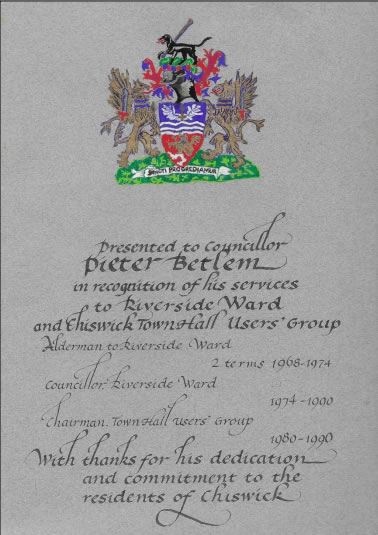 JUNCTI PROGREDIAMUR
Presented to Councillor
Pieter Betlem
in recognition of his services
to Riverside Ward
and Chiswick Town Hall Users' Group
Alderman to Riverside Ward
2 terms 1968-1974
Councillor Riverside Ward
1974-1990
Chairman. Town Hall Users' Group
1980-1990
With thanks for his dedication
and commitment to the
residents of Chiswick